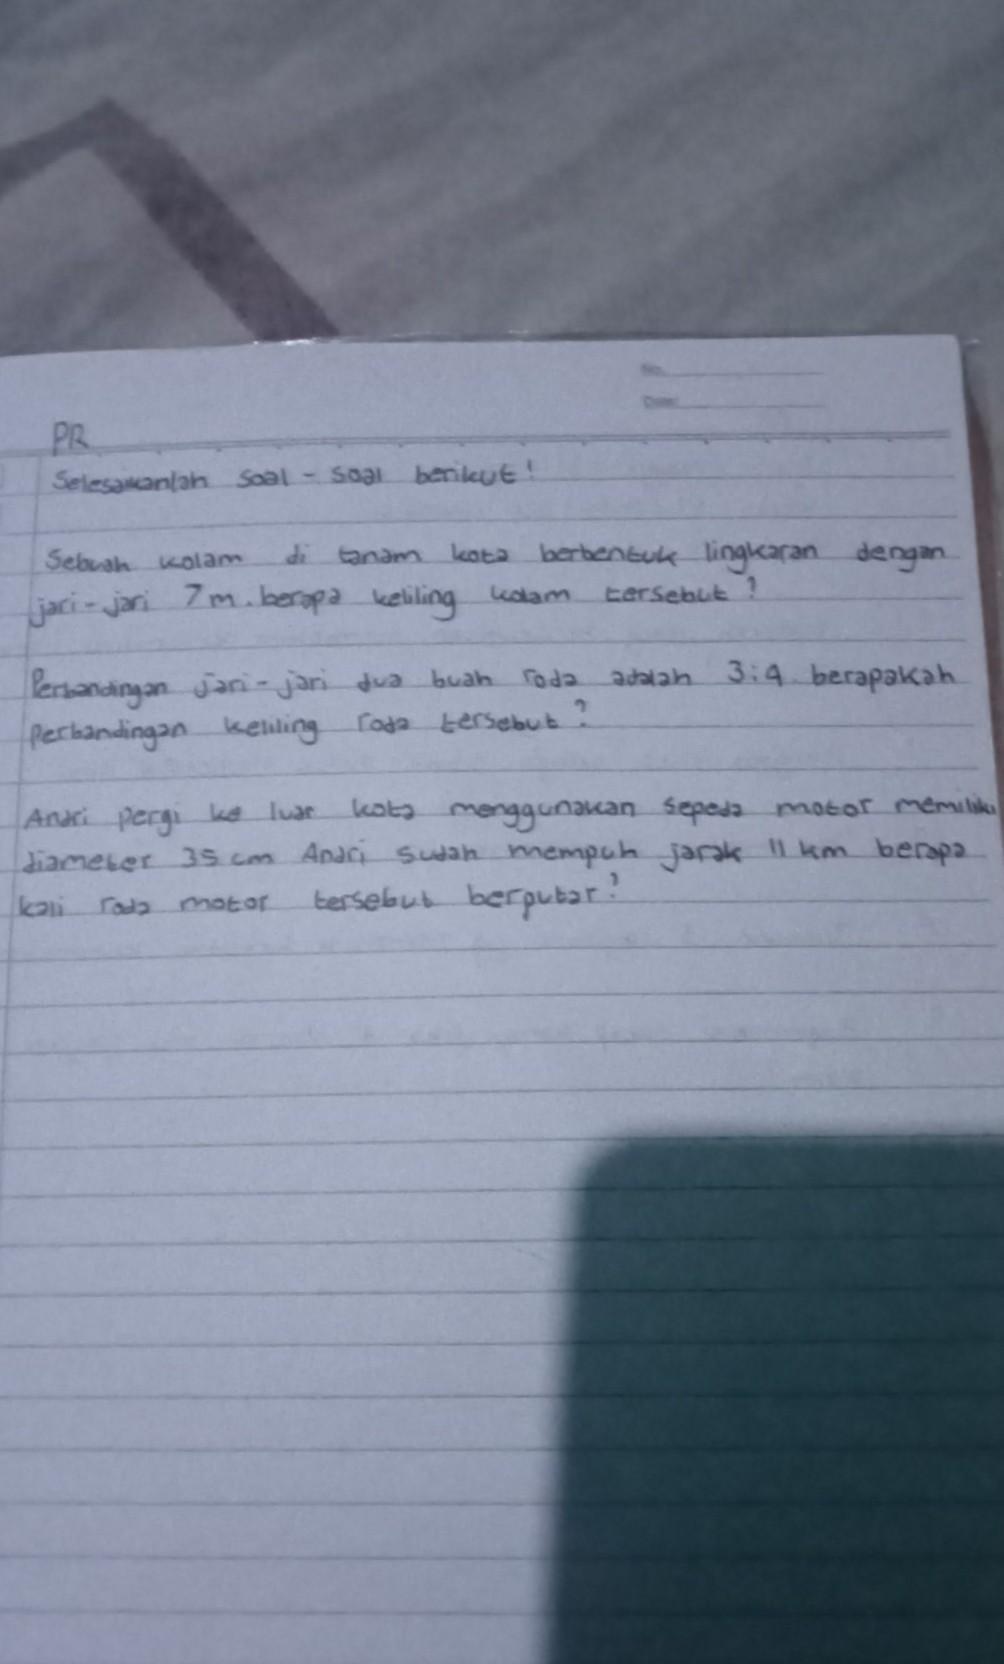 No.
Date:
PR
Selesaikanlah soal - soal berikut!
Sebuah kolam di tanam kota berbentuk lingkaran dengan
jari-jari 7 m. berapa keliling kolam tersebut?
Perbandingan jari-jari dua buah roda adalah 3:4. berapakah
perbandingan keliling roda tersebut?
Andri pergi ke luar kota menggunakan sepeda motor memiliki
diameter 35 cm Andri sudah mempuh jarak 11 km berapa
kali roda motor tersebut berputar?